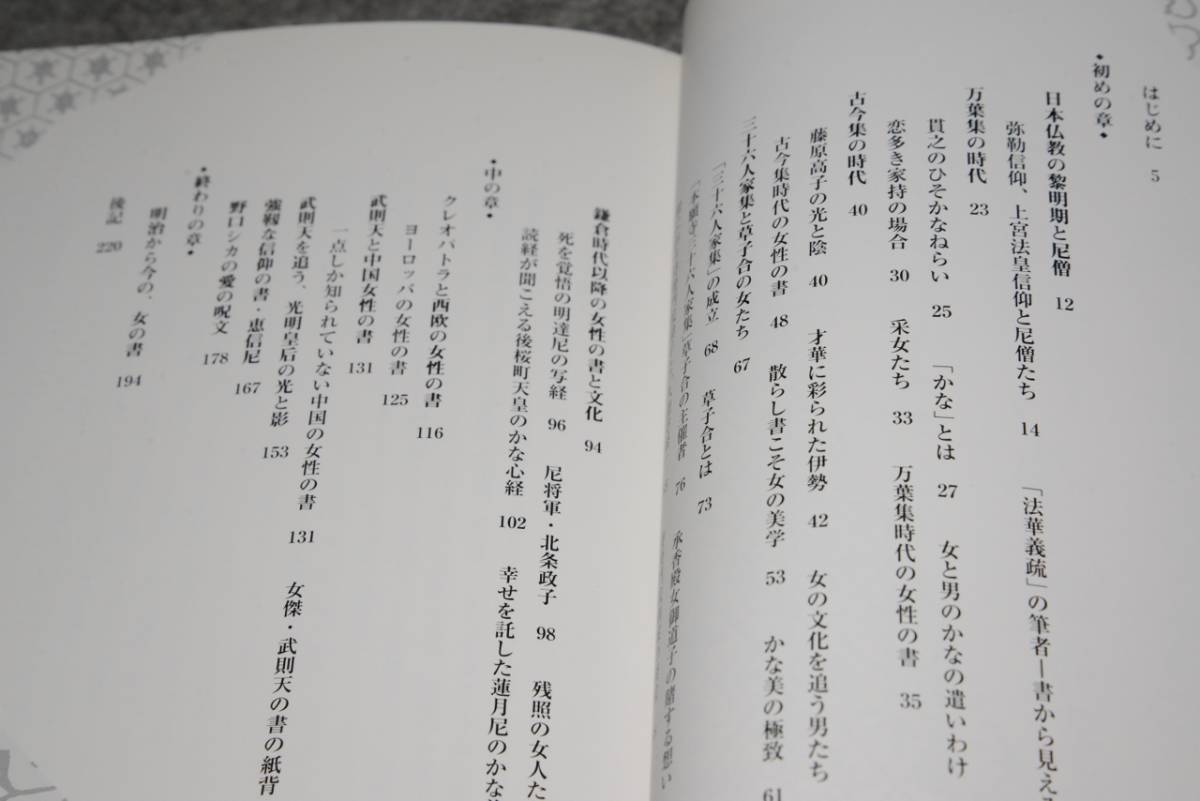 はじめに 5
・初めの章・
日本仏教の黎明期と尼僧 12
弥勒信仰、上宮法皇信仰と尼僧たち 14 「法華義疏」の筆者―書から見える
万葉集の時代 23
貫之のひそかなねらい 25 「かな」とは 27 女と男のかなの遣いわけ
恋多き家持の場合 30 采女たち 33 万葉集時代の女性の書 35
古今集の時代 40
藤原高子の光と陰 40 才華に彩られた伊勢 42 女の文化を追う男たち
古今集時代の女性の書 48 散らし書こそ女の美学 53 かな美の極致 61
三十六人家集と草子合の女たち 67
「三十六人家集」の成立 68 草子合とは 73
「本願寺三十六人家集」草子合の主催者 76 承香殿女御道子の賭する想い
鎌倉時代以降の女性の書と文化 94
死を覚悟の明達尼の写経 96 尼将軍・北条政子 98 残照の女人た
読経が聞こえる後桜町天皇のかな心経 102 幸せを託した蓮月尼のかな
・中の章・
クレオパトラと西欧の女性の書 116
ヨーロッパの女性の書 125
武則天と中国女性の書 131
一点しか知られていない中国の女性の書 131 女傑・武則天の書の紙背
武則天を追う、光明皇后の光と影 153
強靱な信仰の書・恵信尼 167
野口シカの愛の呪文 178
・終わりの章・
明治から今の、女の書 194
後記 220